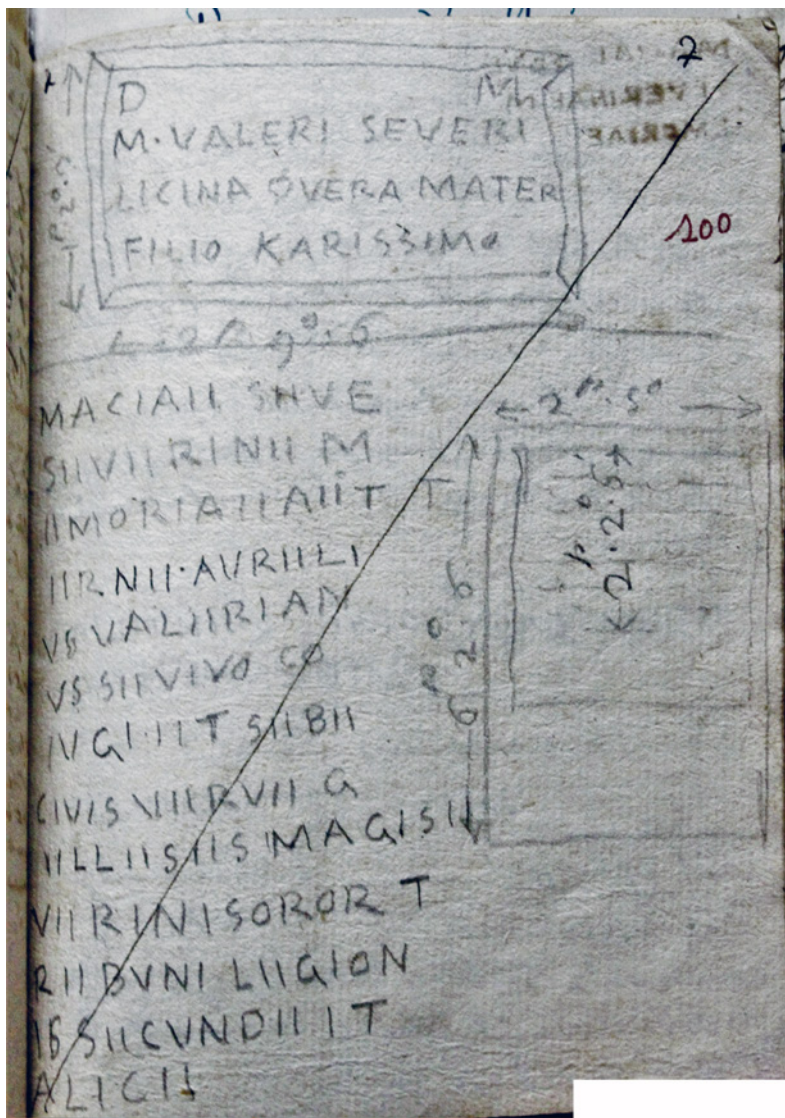 7
100
D M
M·VALERI SEVERI
LICINA QVERA MATER
FILIO KARISSIMO
2 P. 9º·6
MACIAII SIIVE
SIIVIIRINII M
IIMORIAIIAIIT T
IIRNII·AVRIILI
VS VALIIRIAN
VS SII VIVO CO
IVGI·IIT SIIBII
CIVIS VIIRVII G
IILLIISIIS MAGISII
VIIRINISOROR T
RIIBVNI LIIGION
IS SIICVNDII IT
ALICII
2 P. 5º
6 P 2º·6
P º
2·2·6